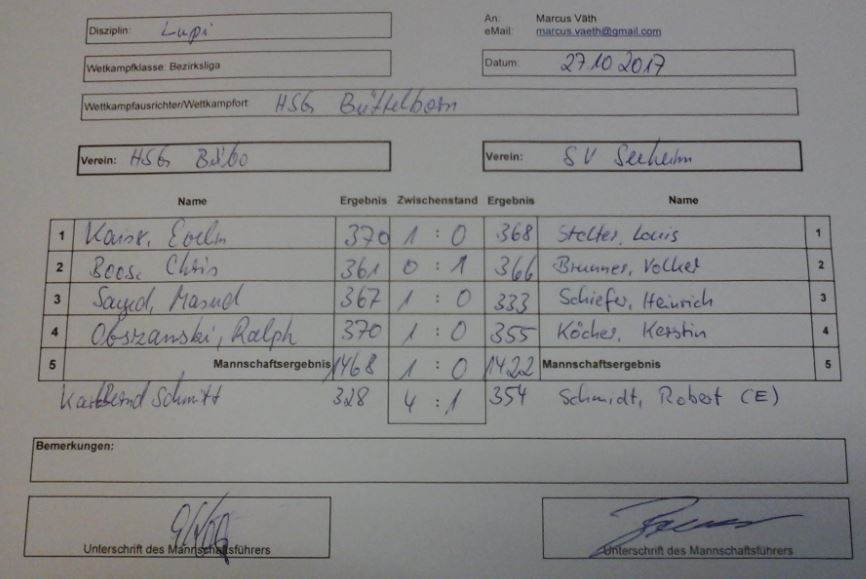 Disziplin: Lupi
An: Marcus Väth
eMail: marcus.vaeth@gmail.com
Wetkampfklasse: Bezirksliga
Datum: 27.10.2017
Wettkampfausrichter/Wettkampfort HSG Büttelborn
Verein: HSG Bübo
Verein: SV Seeheim
Name Ergebnis Zwischenstand Ergebnis Name
1 Evelin 370 1 : 0 368 Stelter, Louis 1
2 Boose Chris 361 0 : 1 366 Brunner, Volker 2
3 Sayed, Masud 367 1 : 0 333 Schiefer, Heinrich 3
4 Obszanski, Ralph 370 1 : 0 355 Köcher, Kerstin 4
5 Mannschaftsergebnis 1468 1 : 0 1422 Mannschaftsergebnis 5
Karl Bernd Schmitt 328 4 : 1 354 Schmidt, Robert (E)
Bemerkungen:
Unterschrift des Mannschaftsführers
Unterschrift des Mannschaftsführers